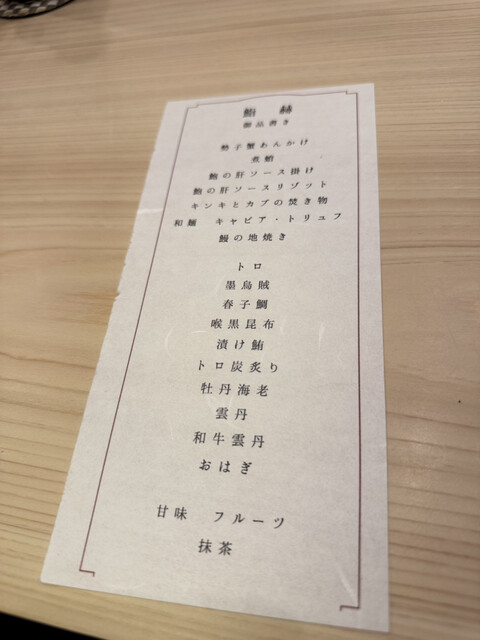 鮨 赫
御品書き
勢子蟹あんかけ
煮蛤
鮑の肝ソース掛け
鮑の肝ソースリゾット
キンキとカブの焚き物
和麺 キャビア・トリュフ
鰻の地焼き
トロ
墨烏賊
春子鯛
喉黒昆布
漬け鮪
トロ炭炙り
牡丹海老
雲丹
和牛雲丹
おはぎ
甘味 フルーツ
抹茶